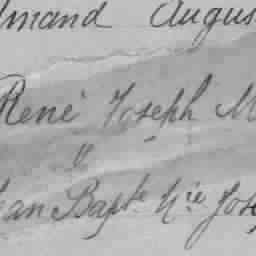 lmand Augus
René Joseph M
"
ean Bapte Nie Jose